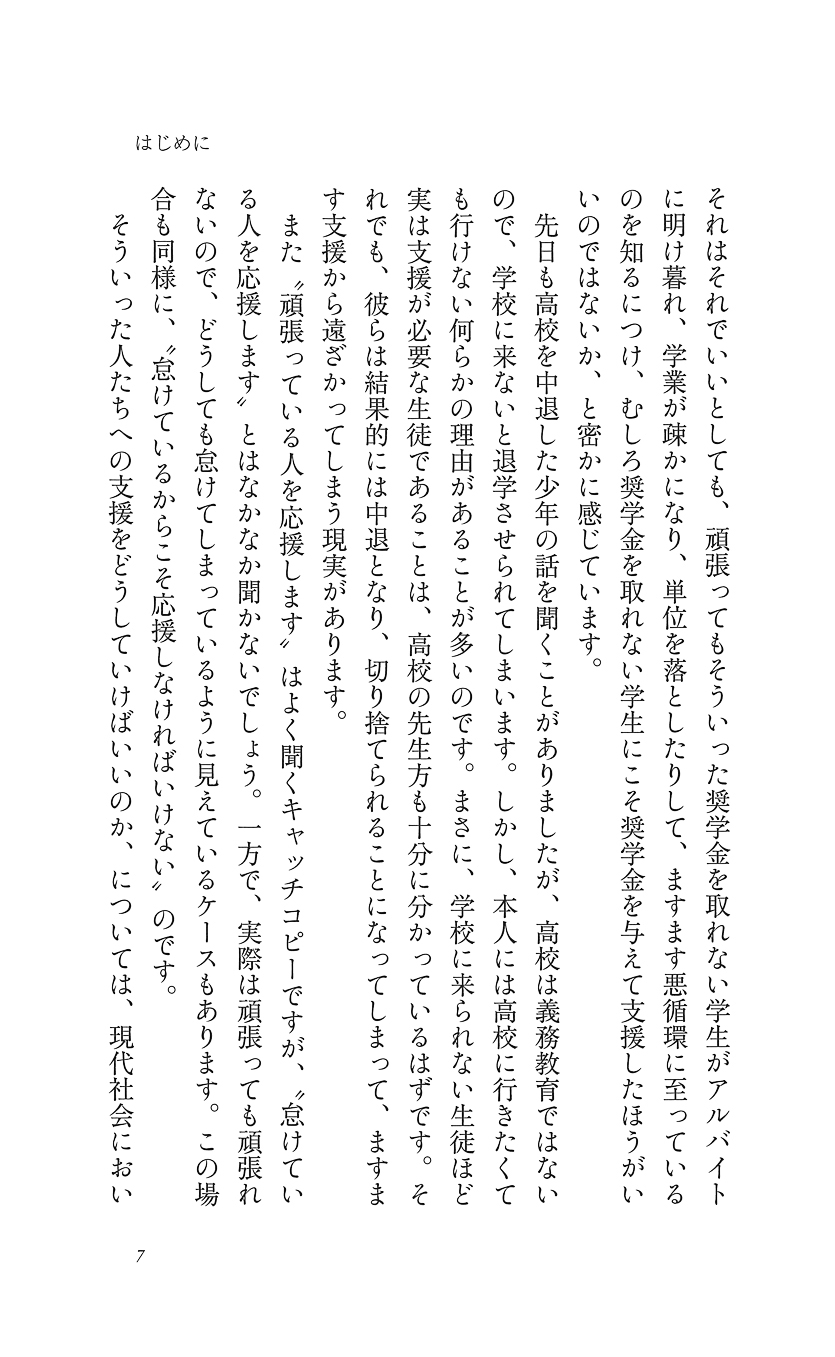 はじめに
それはそれでいいとしても、頑張ってもそういった奨学金を取れない学生がアルバイト
に明け暮れ、学業が疎かになり、単位を落としたりして、ますます悪循環に至っている
のを知るにつけ、むしろ奨学金を取れない学生にこそ奨学金を与えて支援したほうがい
いのではないか、と密かに感じています。
　先日も高校を中退した少年の話を聞くことがありましたが、高校は義務教育ではない
ので、学校に来ないと退学させられてしまいます。しかし、本人には高校に行きたくて
も行けない何らかの理由があることが多いのです。まさに、学校に来られない生徒ほど
実は支援が必要な生徒であることは、高校の先生方も十分に分かっているはずです。そ
れでも、彼らは結果的には中退となり、切り捨てられることになってしまって、ますま
す支援から遠ざかってしまう現実があります。
　また〝頑張っている人を応援します〟はよく聞くキャッチコピーですが、〝怠けてい
る人を応援します〟とはなかなか聞かないでしょう。一方で、実際は頑張っても頑張れ
ないので、どうしても怠けてしまっているように見えているケースもあります。この場
合も同様に、〝怠けているからこそ応援しなければいけない〟のです。
　そういった人たちへの支援をどうしていけばいいのか、については、現代社会におい
7